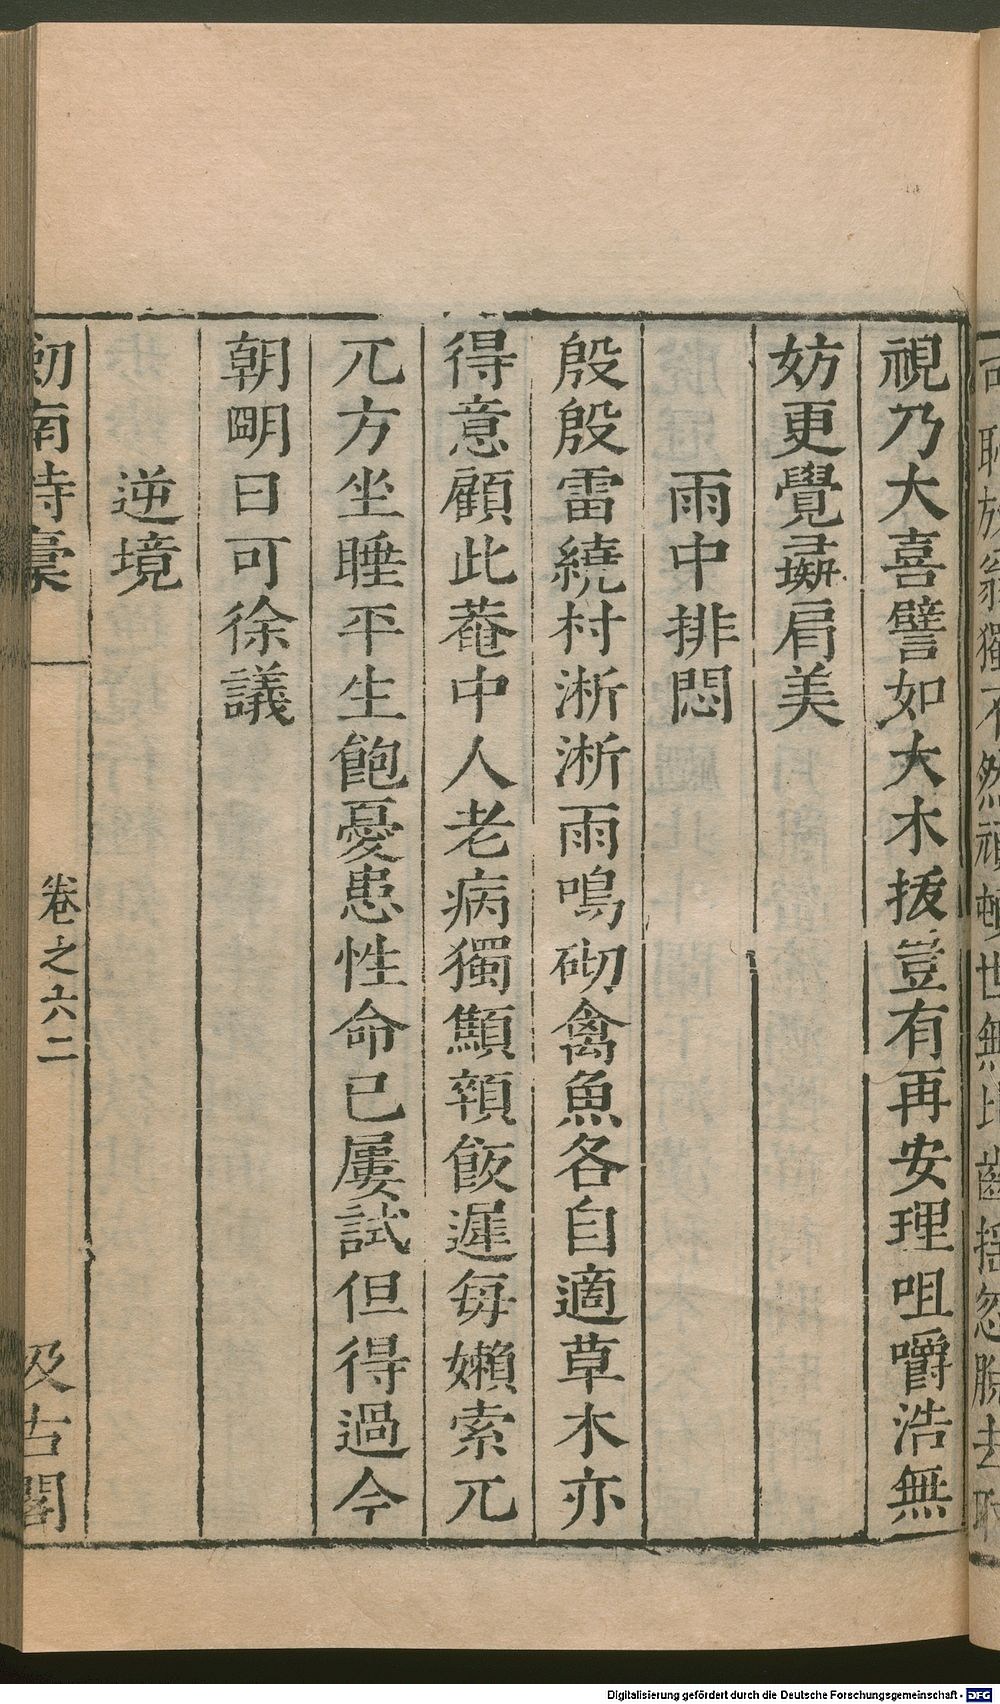 視乃大喜譬如大木拔豈有再安理咀嚼浩無
妨更覺彘肩美
雨中排悶
殷殷雷繞村淅淅雨鳴砌禽魚各自適草木亦
得意顧此菴中人老病獨顦顇飯遲每嬾索兀
兀方坐睡平生飽憂患性命已屢試但得過今
朝明日可徐議
逆境
劒南詩稾
卷之六二
汲古閣
Digitalisierung gefördert durch die Deutsche Forschungsgemeinschaft - DFG